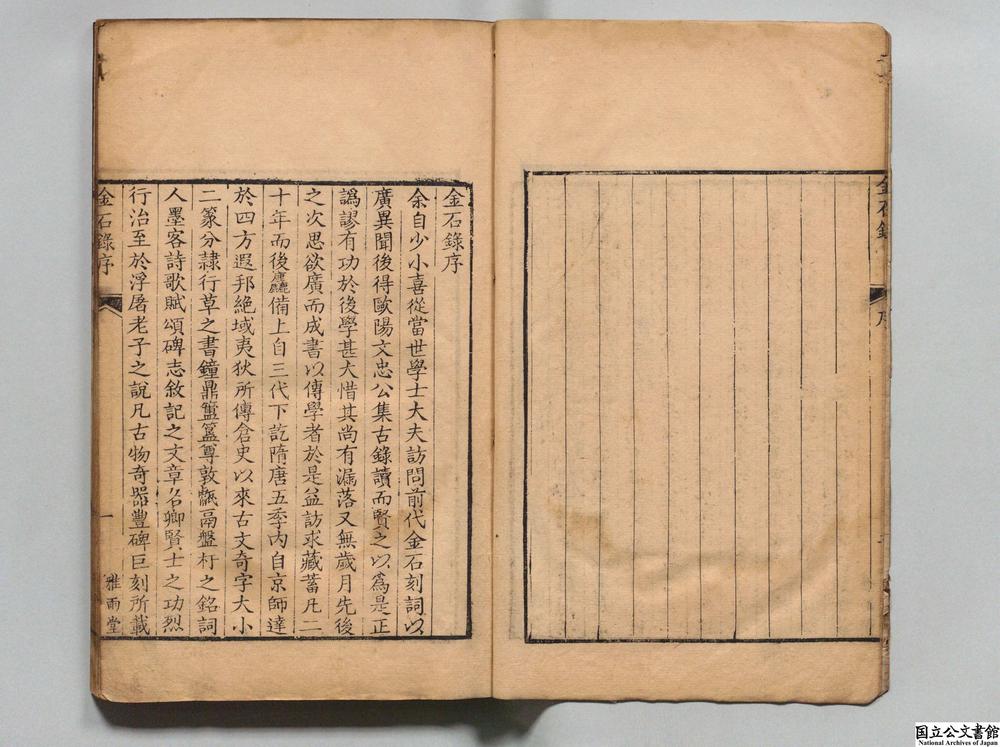 金石錄
序
金石錄序
余自少小喜從當世學士大夫訪問前代金石刻詞以
廣異聞後得歐陽文忠公集古錄讀而賢之以爲是正
譌謬有功於後學甚大惜其尚有漏落又無歲月先後
之次思欲廣而成書以傳學者於是益訪求藏蓄凡二
十年而後麤備上自三代下訖隋唐五季內自京師達
於四方遐邦絶域夷狄所傳倉史以來古文奇字大小
二篆分隷行草之書鐘鼎簠簋尊敦甗鬲盤杅之銘詞
人墨客詩歌賦頌碑志敘記之文章名卿賢士之功烈
行治至於浮屠老子之說凡古物奇器豐碑巨刻所載
金石錄序
一
雅雨堂
国立公文書館
National Archives of Japan